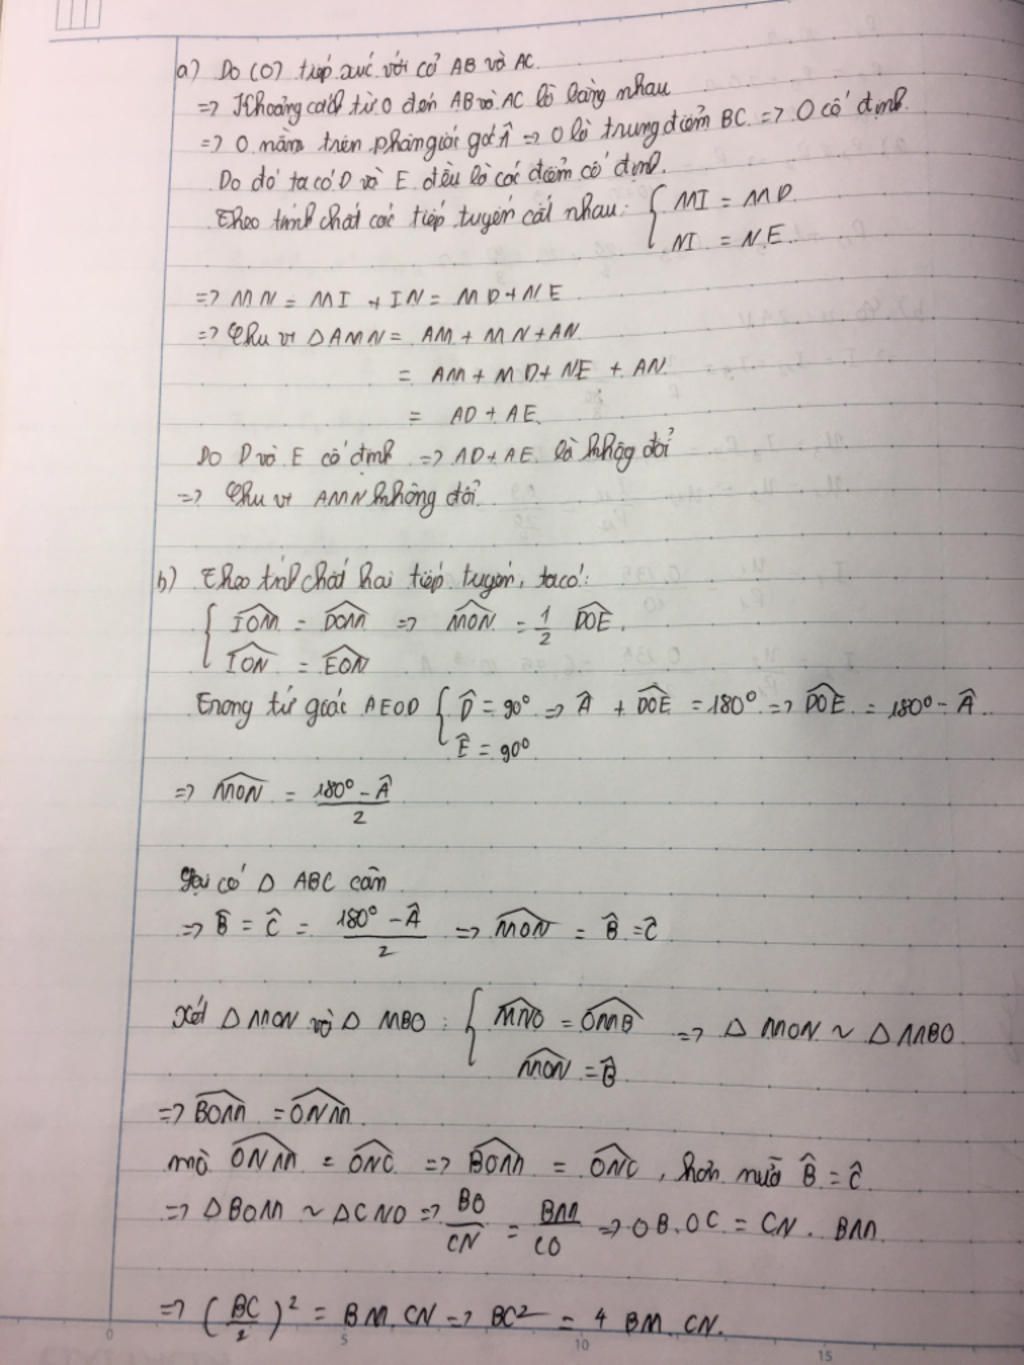 a) Do (O) tiếp xúc với cả AB và AC.
=> Khoảng cách từ O đến AB và AC là bằng nhau
=> O nằm trên phân giác góc Â => O là trung điểm BC. => O cố định.
Do đó ta có D và E đều là các điểm cố định.
Theo tính chất các tiếp tuyến cắt nhau: { MI = MD
NI = NE.
=> MN = MI + IN = MD + NE
=> Chu vi △AMN = AM + MN + AN
= AM + MD + NE + AN
= AD + AE.
Do D và E cố định => AD + AE là không đổi
=> Chu vi AMN không đổi.
b) Theo tính chất hai tiếp tuyến, ta có:
{ \widehat{IOM} = \widehat{DOM} => \widehat{MON} = \frac{1}{2} \widehat{DOE}.
\widehat{ION} = \widehat{EON}
Trong tứ giác AEOD { \hat{D} = 90° => \hat{A} + \widehat{DOE} = 180° => \widehat{DOE} = 180° - \hat{A}.
\hat{E} = 90°
=> \widehat{MON} = \frac{180° - \hat{A}}{2}
Lại có △ ABC cân
=> \hat{B} = \hat{C} = \frac{180° - \hat{A}}{2} => \widehat{MON} = \hat{B} = \hat{C}
Xét △ MON và △ MBO : { \widehat{MNO} = \widehat{OMB} => △ MON ~ △ MBO
\widehat{MON} = \hat{B}
=> \widehat{BOM} = \widehat{ONM}
mà \widehat{ONM} = \widehat{ONC} => \widehat{BOM} = \widehat{ONC}, hơn nữa \hat{B} = \hat{C}
=> △BOM ~ △CNO => \frac{BO}{CN} = \frac{BM}{CO} => OB.OC = CN . BM.
=> (\frac{BC}{2})² = BM. CN => BC² = 4 BM. CN.
0 5 10 15